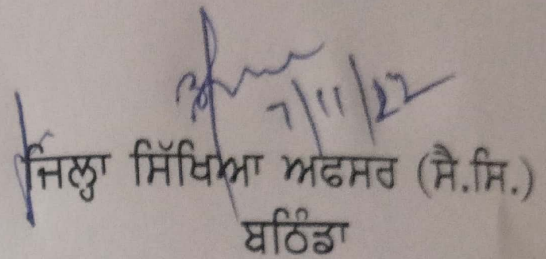 7/11/22
ਜਿਲ੍ਹਾ ਸਿੱਖਿਆ ਅਫਸਰ (ਸੈ.ਸਿ.)
ਬਠਿੰਡਾ